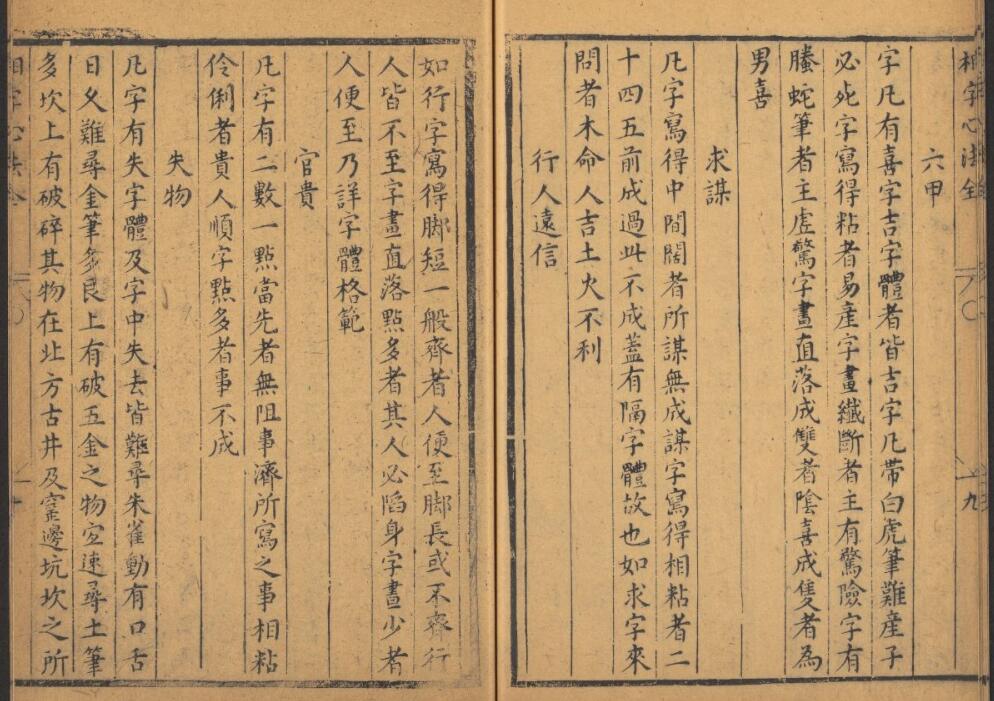 相字心法全
九
六甲
字凡有喜字吉字體者皆吉字凡带白虎筆難産子
必死字寫得粘者易産字畫纖斷者主有驚險字有
螣蛇筆者主虚驚字畫直落成雙者陰喜成隻者為
男喜
求謀
凡字寫得中間闊者所謀無成謀字寫得相粘者二
十四五前成過此不成蓋有隔字體故也如求字來
問者木命人吉土火不利
行人遠信
如行字寫得脚短一般齊者人便至脚長或不齊行
人皆不至字畫直落點多者其人必陷身字畫少者
人便至乃詳字體格範
官貴
凡字有二數一點當先者無阻事濟所寫之事相粘
伶俐者貴人順字點多者事不成
失物
凡字有失字體及字中失去皆難尋朱雀動有口舌
日久難尋金筆多艮上有破五金之物宜速尋土筆
多坎上有破碎其物在北方古井及窯邊坑坎之所